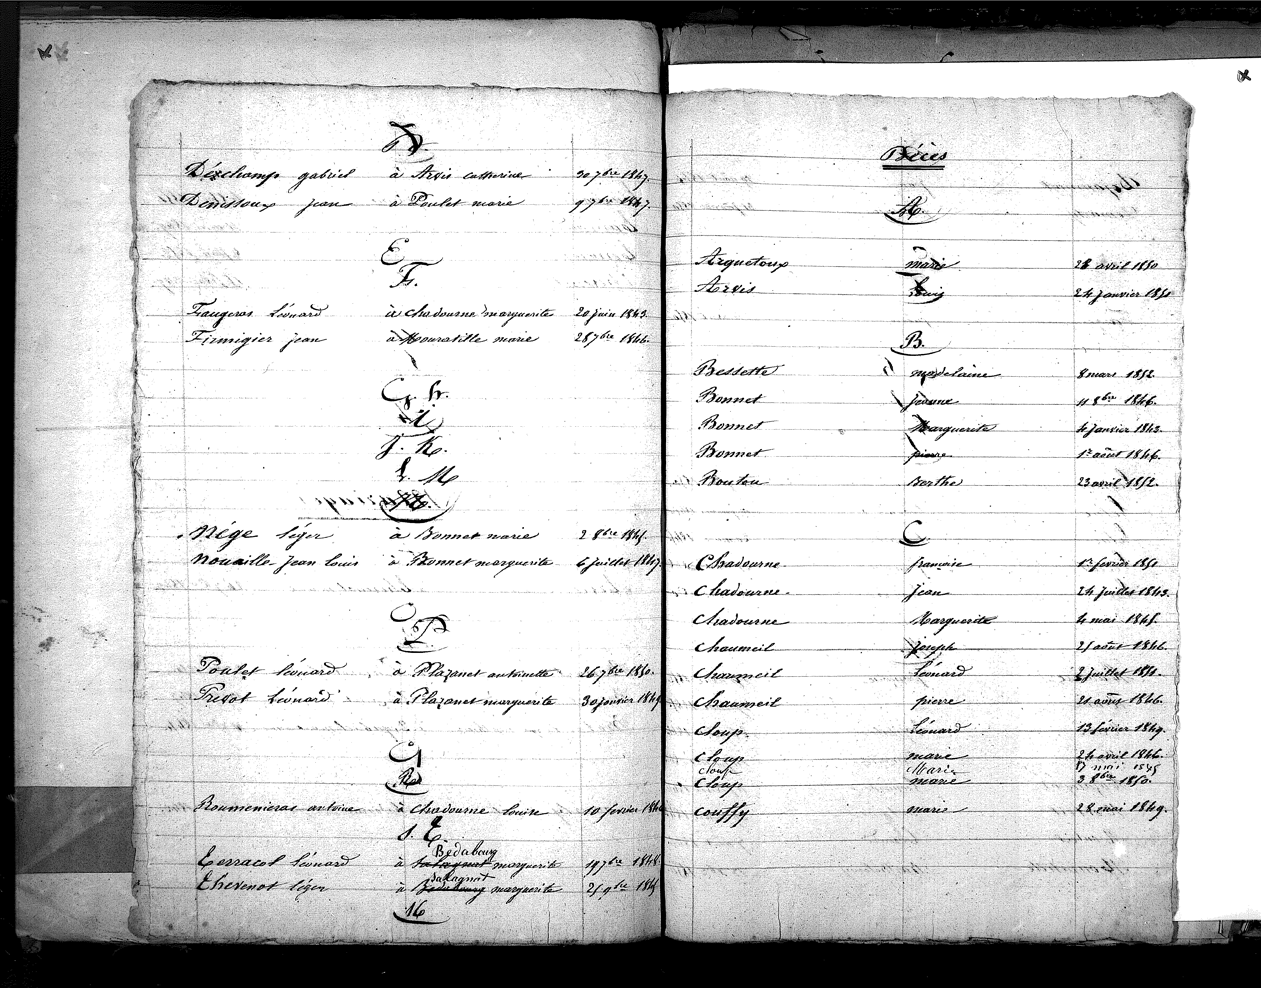 D.
Deschamp gabriel à Arvis catherine 30 7bre 1847.
Denissoux jean à Poulet marie 9 7bre 1847.
E
F.
Faugeras Léonard à chadourne marguerite 20 juin 1843.
Firmigier jean à Mouratille marie 28 7bre 1846.
G. h.
I
J. K.
L. M
N.
Nége léger à Bonnet marie 2 8bre 1845.
Nouaille jean louis à Bonnet marguerite 6 juillet 1847.
O
P
Poulet léonard à Plazanet antoinette 26 7bre 1850.
Trevot Léonard à Plazanet marguerite 30 janvier 1849
Q
R
Roumenieras antoine à chadourne louise 10 fevrier
S. T.
Bedabourg
Terracol léonard à Salagnat marguerite 19 7bre 1848.
Salagnat
Thevenot léger à Bedabourg marguerite 25 9bre 1845
Décès
A.
Arquetoux marie 28 avril 1850
Arvis Louis 24 janvier 1851
B.
Bessette madelaine 8 mars 1852
Bonnet jeanne 11 8bre 1846.
Bonnet Marguerite 4 janvier 1843.
Bonnet pierre 1r août 1846.
Boutou Berthe 23 avril 1852.
C.
Chadourne françoise 1r fevrier 1851
Chadourne jean 24 juillet 1843.
Chadourne Marguerite 4 mai 1845.
Chaumeil Joseph 25 août 1846.
Chaumeil Léonard 2 juillet 1851.
Chaumeil pierre 21 août 1846.
Cloup Léonard 13 février 1849.
Cloup marie 24 avril 1846.
Cloup Marie 17 mai 1845
Cloup marie 3 8bre 1850.
Couffy marie 28 mai 1849.